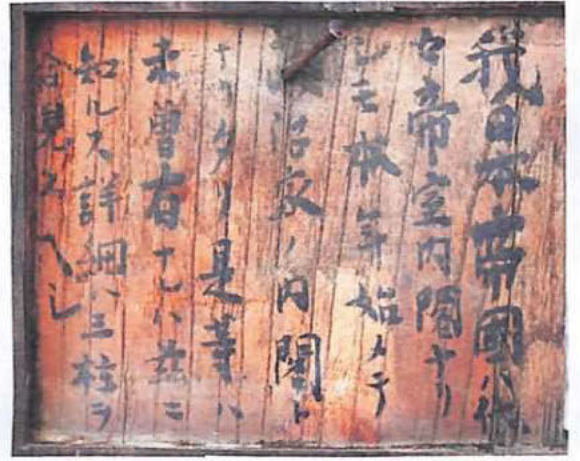 我日本帝國ハ從
セ帝室内閣ナリ
シモ本年始メテ
政治家ノ内閣ト
ナリタリ是等ハ
未曽有ナレハ茲ニ
知ルス詳細ハ三柱ヲ
合見スヘシ